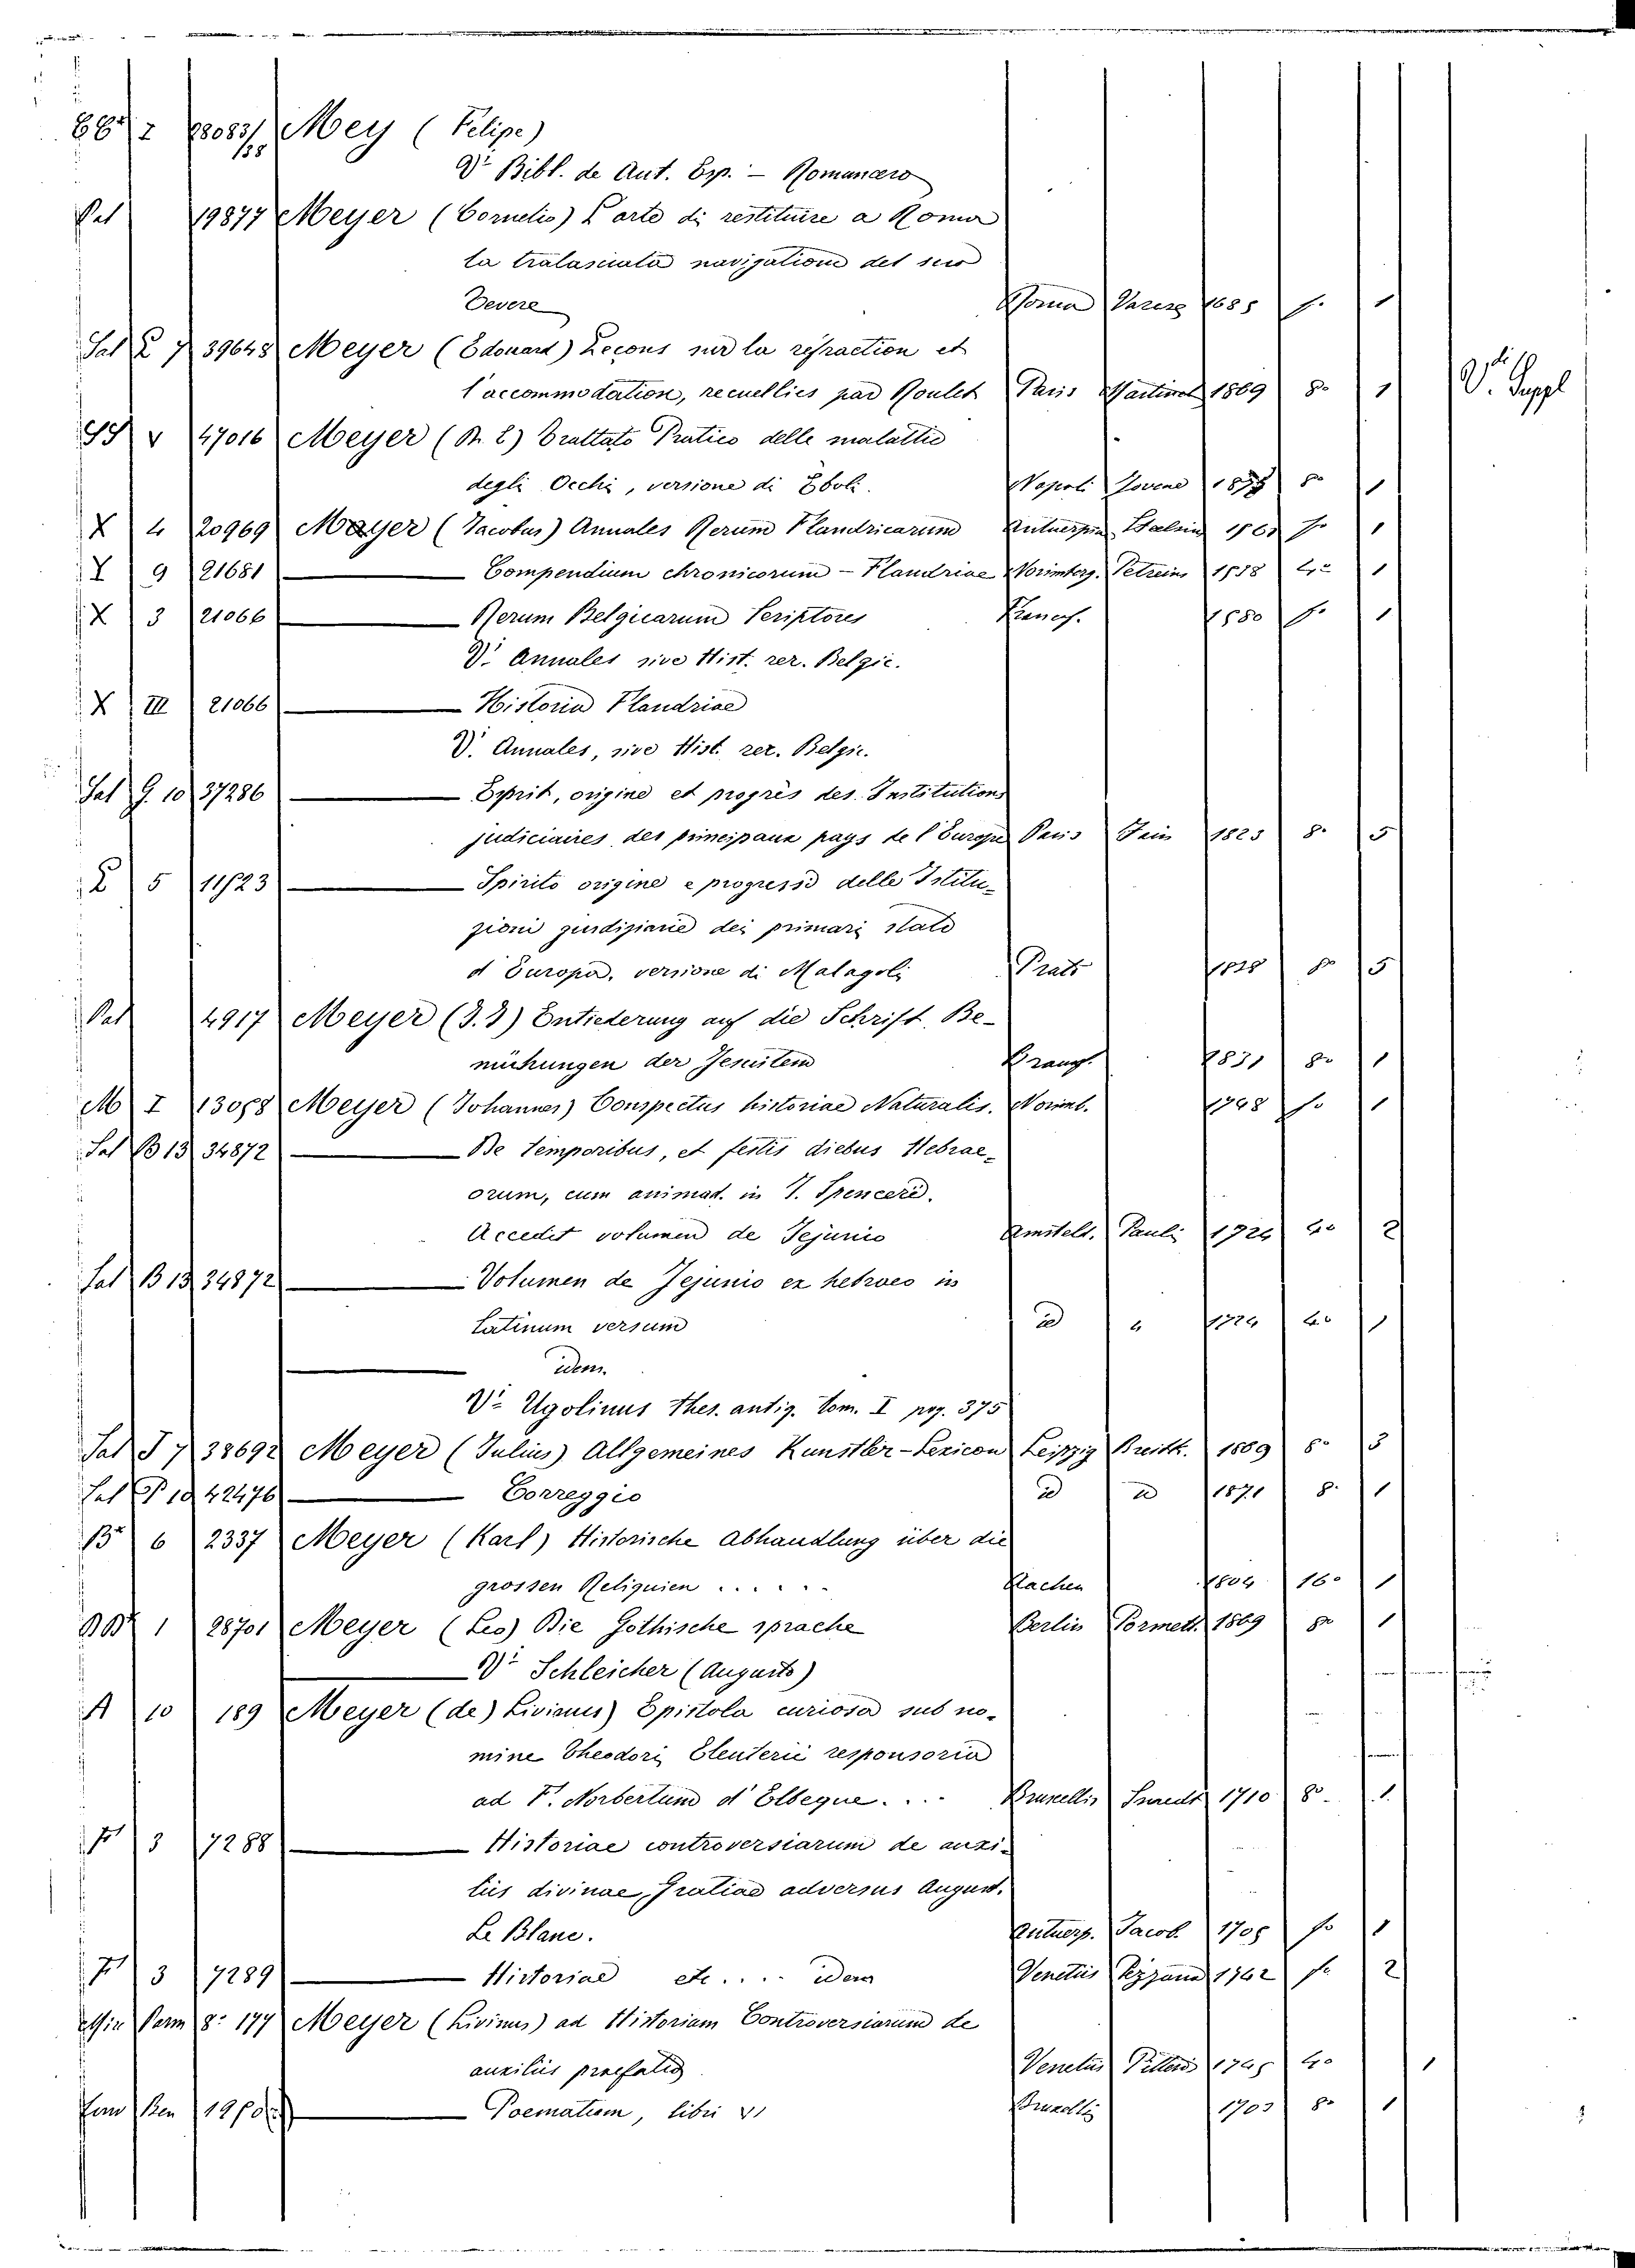 I 18083/138 Mey (Felipe)
Vi Bibl. de Aut. Esp. – Romancero
19877 Meyer (Cornelio) L'arte di restituire a Roma
la tralasciata navigatione del suo
Tevere Roma Varese 1685 f. 1
Sal E 7 39648 Meyer (Edouard) Leçons sur la refraction et
l'accommodation, recuellies par Roulet Paris Martinet 1869 8° 1 Vdi Suppl
v 47016 Meyer (Trattato Pratico delle malattie
degli Occhi, versione di Eboli. Napoli Jovene 8° 1
X 4 20969 Mayer (Jacobus) Annales Rerum Flandricarum Antuerpiæ 1561 f° 1
X 9 21681 Compendium chronicorum – Flandriae Norimberg. Petreius 1538 4° 1
X 3 21066 Rerum Belgicarum Scriptores Francf. 1580 f° 1
V. Annales sive Hist. rer. Belgic.
X III 21066 Historia Flandriae
V. Annales, sive Hist. rer. Belgic.
Sal G. 10 37286 Esprit, origine et progrès des Institutions
judiciaires des principaux pays de l'Europe Paris 1823 8° 5
5 11523 Spirito origine e progresso delle Istitu-
zioni giudiziarie dei primari stati
d'Europa, versione di Malagoli Prato 1828 8° 5
4917 Meyer (J. J) Entiederung auf die Schrift Be-
mühungen der Jesuiten 1831 8° 1
M I 13058 Meyer (Johannes) Conspectus historiae Naturalis. Norimb. 1748 f° 1
Sal B 13 34872 De temporibus, et festis diebus Hebrae-
orum, cum animad. in J. Spencere.
Accedit volumen de Jejunio Amsteld. Pauli 1724 4° 2
Sal B 13 34872 Volumen de Jejunio ex hebroeo in
Latinum versum id 1724 4° 1
idem.
Vi Ugolinus Thes. antiq. Tom. I pag. 375
Sal J 7 38692 Meyer (Julius) Allgemeines Kunstler-Lexicon Leipzig Breitk. 1869 8° 3
Sal P 10 42476 Correggio id id 1871 8° 1
6 2337 Meyer (Karl) Historische Abhandlung über die
grossen Reliquien ...... Aachen 1804 16° 1
1 28701 Meyer (Leo) Die Gothische sprache Berlin 1869 8° 1
Vi Schleicher (Augusto)
A 10 189 Meyer (de) Livinus) Epistola curiosa sub no-
mine Theodori Eleuterii responsoria
ad F. Norbertum d'Elbeque.... Bruxellis 1710 8° 1
3 7288 Historiae controversiarum de auxi-
liis divinae Gratiae adversus August.
Le Blanc. Antuerp. Jacob. 1705 f° 1
3 7289 Historiae etc.... idem Venetiis 1742 f° 2
Min Parm 8° 177 Meyer (Livinus) ad Historiam Controversiarum de
auxiliis praefatio Venetiis 1745 4° 1
Poematum, libri VI Bruxellis 1703 8° 1